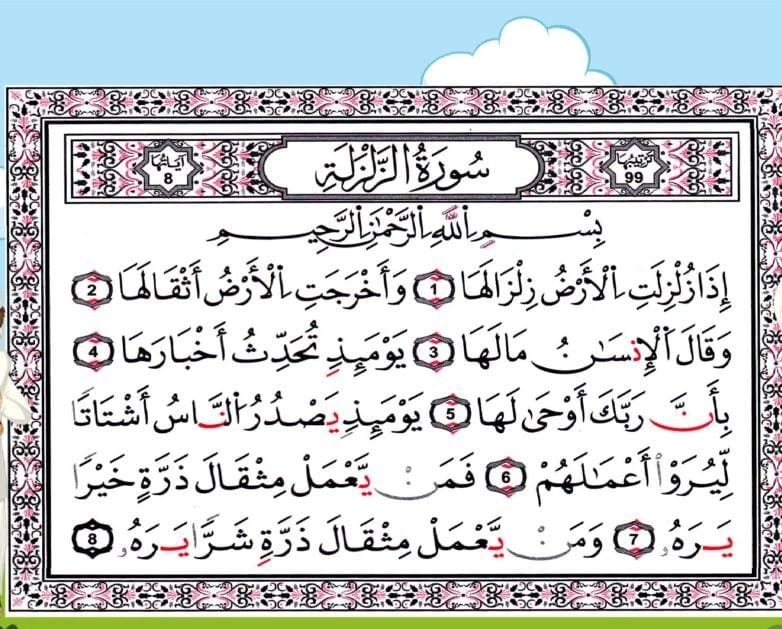 تَرْتِيبُهَا 99
سُورَةُ الزَّلْزَلَةِ
آيَاتُهَا 8
بِسْمِ اِللَّهِ اِلرَّحْمَٰنِ اِلرَّحِيمِ
إِذَا زُلْزِلَتِ اِلْأَرْضُ زِلْزَالَهَا 1 وَأَخْرَجَتِ اِلْأَرْضُ أَثْقَالَهَا 2
وَقَالَ اَلْإِنسَٰنُ مَالَهَا 3 يَوْمَئِذٍ تُحَدِّثُ أَخْبَارَهَا 4
بِأَنَّ رَبَّكَ أَوْحَىٰ لَهَا 5 يَوْمَئِذٍ يَصْدُرُ اُلنَّاسُ أَشْتَاتًا
لِّيُرَوْا أَعْمَٰلَهُمْ 6 فَمَنْ يَّعْمَلْ مِثْقَالَ ذَرَّةٍ خَيْرًا
يَرَهُۥ 7 وَمَنْ يَّعْمَلْ مِثْقَالَ ذَرَّةٍ شَرًّا يَرَهُۥ 8